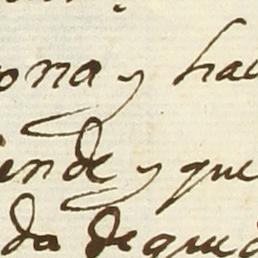 ona y hac
iende y que
da de que